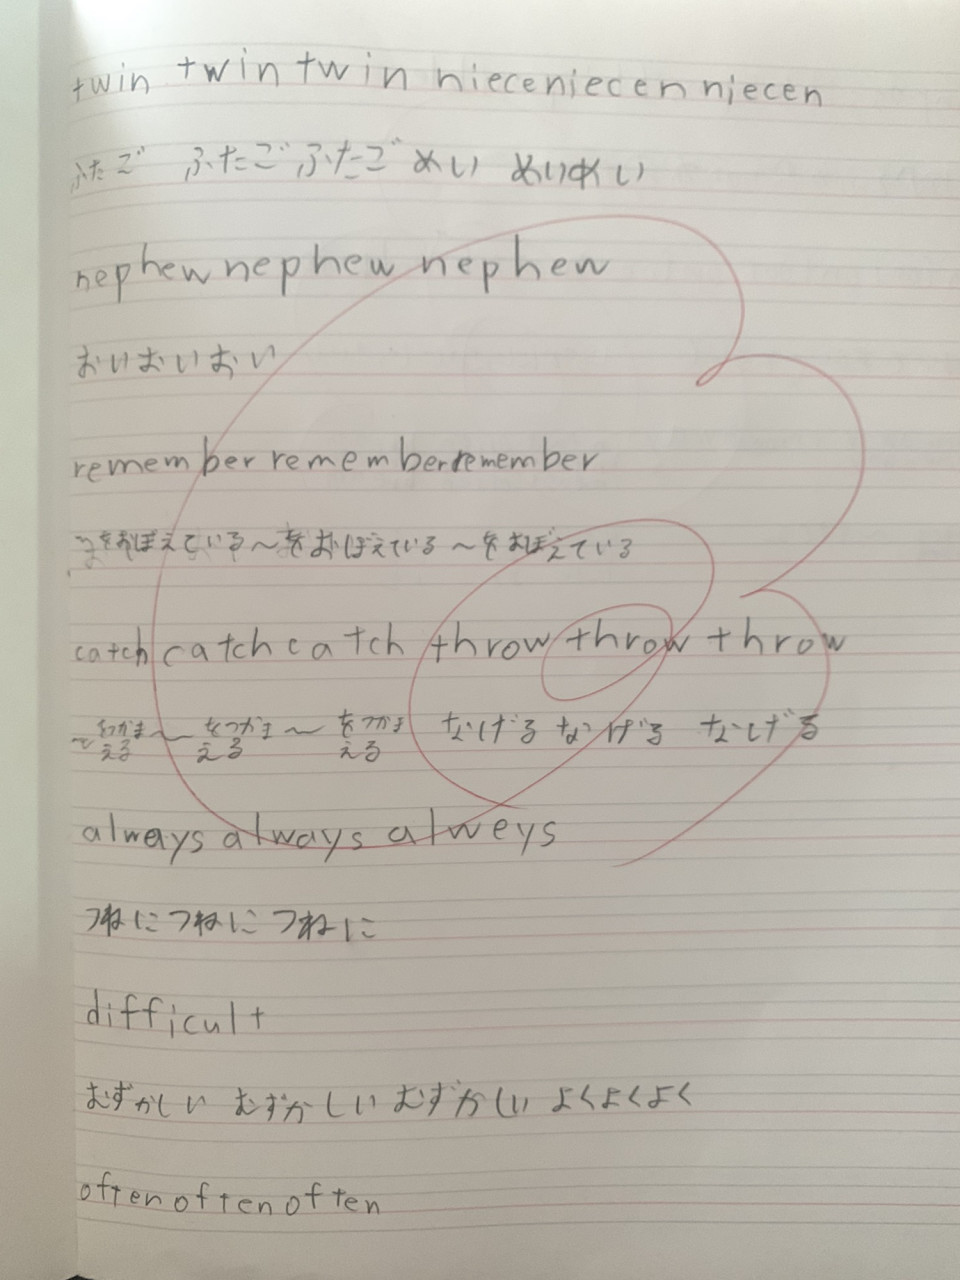 twin twin twin nieceniecen niecen
ふたご ふたご ふたご めい めいめい
nephew nephew nephew
おいおいおい
remember rememberremember
～をおぼえている～をおぼえている～をおぼえている
catch catch catch throw throw throw
～をつかまえる～をつかまえる～をつかまえる なげる なげる なげる
always always alweys
つねにつねにつねに
difficult
むずかしい むずかしい むずかしい よくよくよく
oftenoftenoften